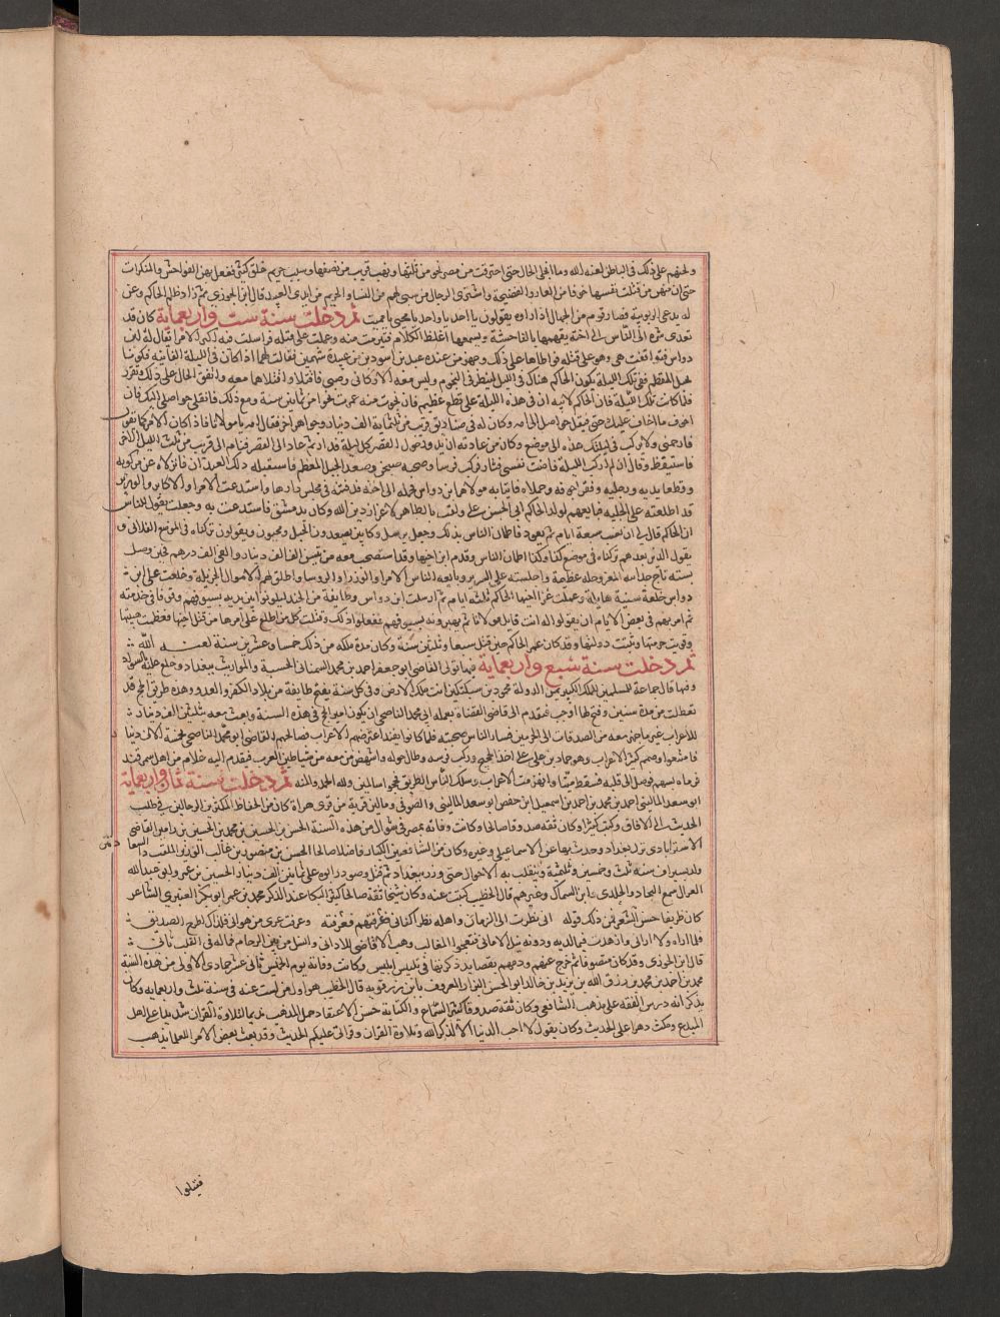 ولحثهم على ذلك في الباطن لعنه الله وما انجلى الحال حتى احترقت من مصر نحو من ثلثها ونهب قريب من نصفها وسبيت حريم خلق كثير ففعل بهن الفواحش والمنكرات
حتى ان منهن من قتلت نفسها خوفا من العار والفضيحة واشترى الرجال من سبى لهم من النساء والحريم من ايدى العبيد قال ابن الجوزي ثم زاد ظلم الحاكم وعن
له يدعى الربوبية فصار قوم من الجهال اذا راوه يقولون يا احد يا واحد يا محيي يا مميت ثم دخلت سنة ست واربعماية كان قد
تعدى شره الى الناس الى اخته يتهمها بالفاحشة ويسمعها اغلظ الكلام فتبرمت منه وعملت على قتله فراسلت فيه اكبر الامرا يقال له ابن
دواس فتوافقت هي وهو على قتله فواطاها على ذلك وجهز من عنده عبدين اسودين من عبيده شهمين فقالت لهما اذا كان في الليلة الفلانية فكونا
بجبل المقطم ففي تلك الليلة يكون الحاكم هناك في الليل لينظر في النجوم وليس معه الا ركابي وصبي فاقتلاه واقتلاهما معه واتفق الحال على ذلك وتقرر
فلما كانت تلك الليلة قال الحاكم لامه ان في هذه الليلة على قطع عظيم فان نجوت منه عمرت نحوا من ثمانين سنة ومع ذلك فانقلى حواصلى اليك فان
اخوف ما اخاف عليك اختي فنقل حواصله الى امه وكان له في صناديق قريب من ثلثماية الف دينار وجواهر اخر فقالت له امه يا مولانا فاذا كان الامر كما تقول
فارحمني ولا تركب في ليلتك هذه الى موضع وكان من عادته ان يدور حول القصر كل ليلة فدار ثم عاد الى القصر فنام الى قريب من ثلث الليل الاخير
فاستيقظ وقال ان لم اركب الليلة فاضت نفسي فثار فركب فرسا وصحبه صبي وصعد الجبل المقطم فاستقبله ذلك العبدان فانزلاه عن مركوبه
وقطعا يديه ورجليه وبقرا جوفه وحملاه فاتيا به مولاهما ابن دواس فحمله الى اخته فدفنته في مجلس دارها واستدعت الامرا والاكابر والوزير
قد اطلعته على الجلية فبايعهم لولد الحاكم ابي الحسن علي ولقب بالظاهر لاعزاز دين الله وكان بدمشق فاستدعت به وجعلت تقول للناس
ان الحاكم قال لي انه يغيب سبعة ايام ثم يعود فاطمان الناس بذلك وجعل ترسل ركابيين يصعدون الجبل ويجيون ويقولون تركناه في الموضع الفلاني و
يقول الذين بعدهم تركناه في موضع كذا وكذا اطمان الناس وقدم ابن اخيها وقد استصحب معه من تنيس الف الف دينار والفي الف درهم فحين وصل
دواس خلعة سنية هايلة وعملت عزا اخيها الحاكم ثلثة ايام ثم ارسلت الى ابن دواس وطايفة من الجند ليكونوا بين يديه بسيوفهم وقوفا في خدمته
ثم امرتهم في بعض الايام ان يقولوا له انت قاتل مولانا ثم يهبرونه بسيوفهم ففعلوا ذلك وقتلت كل من اطلع على امرها من قتل اخيها فعظمت هيبتها
وقويت حرمتها وثبتت دولتها وقد كان عمر الحاكم حين قتل سبعا وثلثين سنة وكان مدة ملكه من ذلك خمسا وعشرين سنة لعنه الله
ثم دخلت سنة سبع واربعماية فيها تولى القاضي ابو جعفر احمد بن محمد السمناني الحسبة والمواريث ببغداد وخلع عليه بالسواد
وفيها قال جماعة للسلطان الملك الكبير يمين الدولة محمود بن سبكتكين انت ملك الارض وفي كل سنة يفتح طايفة من بلاد الكفر والعدو وهذه طريق الحج قد
تعطلت من مدة سنين وفتحها اوجب فتقدم الى قاضي القضاة بعمله ابي محمد الناصحي ان يكون امير الحج في هذه السنة وبعث معه بثلثين الف دينار
للاعراب غير ما جهز معه من الصدقات الى الحرمين فسار الناس صحبته فلما كانوا بفيد اعترضهم الاعراب فصالحهم القاضي ابو محمد الناصحي بخمسة الاف دينا ر
فامتنعوا وصمم كبير الاعراب وهو حماد بن عدي على اخذ الحجيج وركب فرسه وجال جوله واستنهض من معه من شياطين العرب فتقدم اليه غلام من اهل سمرقند
فرماه بسهم فوصل الى قلبه فسقط ميتا وانهزمت الاعراب وسلك الناس الطريق فحجوا سالمين ولله الحمد والمنة ثم دخلت سنة ثمان واربعماية
ابو سعد الماليني احمد بن محمد بن احمد بن اسمعيل ابن حفص ابو سعد الماليني والصوفي ومالين قرية من قرى هراة كان من الحفاظ المكثرين الرحالين في طلب
الحديث الى الافاق وكتب كثيرا وكان ثقة صدوقا صالحا وكانت وفاته بمصر في شوال من هذه السنة الحسن بن الحسين بن محمد بن الحسين بن رامين القاضي
الاستراباذي نزل بغداد وحدث بها عن الاسماعيلي وغيره وكان من الشافعيين الكبار فاضلا صالحا الحسن بن منصور بن غالب الوزير الملقب ذا السعادتين
ولد بسيراف سنة ثلث وخمسين وثلثمية وتنقلت به الاحوال حتى وزر ببغداد ثم قتل وصودر ابوه على ثمانين الف دينار الحسين بن عمر وابو عبد الله
الغزال سمع النجاد والخلدي وابن السماك وغيرهم قال الخطيب كتبت عنه وكان شيخا ثقة صالحا كثير البكا عند الذكر محمد بن عمر ابو بكر العنبري الشاعر
كان ظريفا حسن الشعر فمن ذلك قوله انى نظرت الى الزمان واهله نظرا كفاني فعرفتهم وعرفته وعرفت عزي من هواني فلذاك اطرح الصديق
فلا اراه ولا اراني وزهدت فيما لديه ودونه نيل الاماني فتعجبوا لمغالب وهب الاقاصي للاداني وانسل من بين الزحام فما له في القلب ثاني
قال ابن الجوزي وقد كان متصوفا ثم خرج عنهم وذمهم بقصايد ذكرتها في تلبيس ابليس وكانت وفاته يوم الخميس ثاني عشر جمادى الاولى من هذه السنة
محمد بن احمد بن محمد بن رزق الله بن يزيد بن خالد ابو الحسن البزار المعروف بابن رزقويه قال الخطيب هو اول من كتبت عنه في سنة ثلث واربعمايه وكان
يذكر انه درس الفقه على مذهب الشافعي وكان ثقة صدوقا كثير السماع والكتابة حسن الاعتقاد جميل المذهب مديما لتلاوة القران شديدا على اهل
البدع ومكث دهرا على الحديث وكان يقول لا احب الدنيا الا لذكر الله وتلاوة القران وقراتي عليكم الحديث وقد بعث بعض الامرا للعلما بذهب
فقبلوا